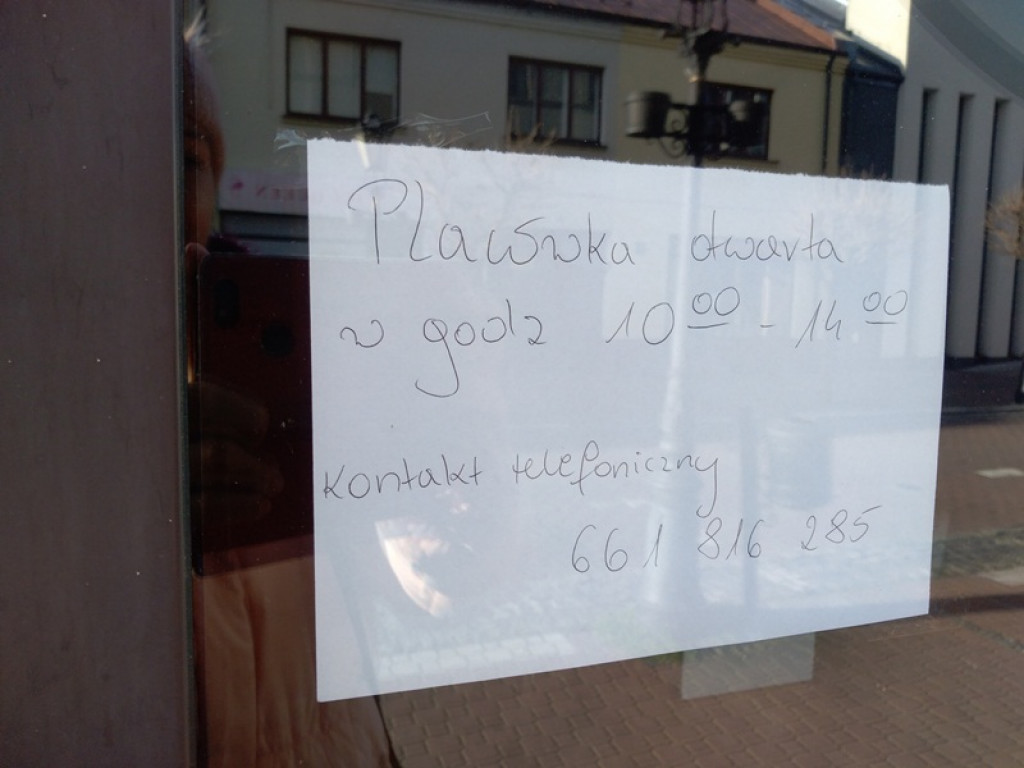 Placówka otwarta
w godz 10 00 - 14 00
Kontakt telefoniczny
661 816 285